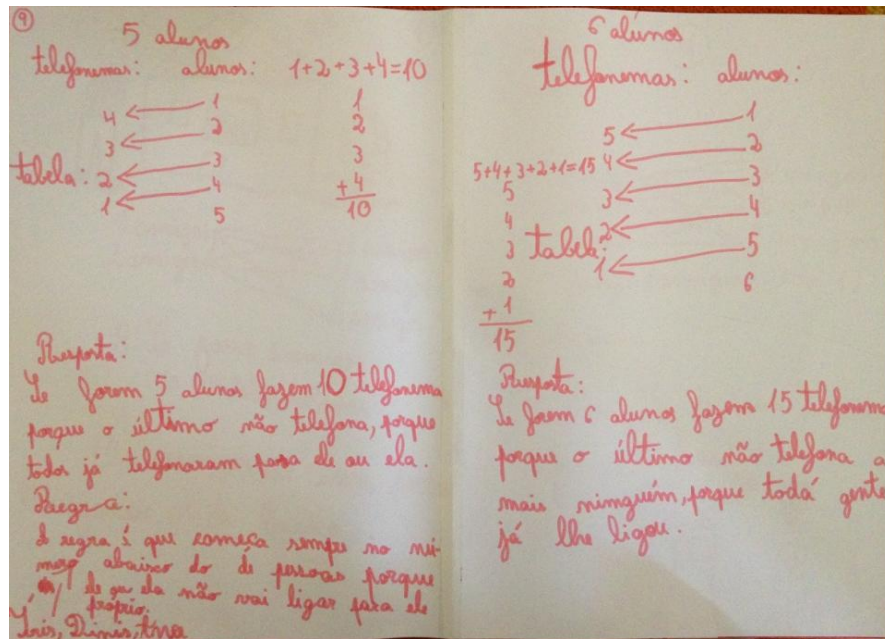 9
5 alunos
telefonemas: alunos: 1+2+3+4=10
4 1
3 2
tabela: 2 3
1 4
5
1
2
3
+4
10
Resposta:
Se forem 5 alunos fazem 10 telefonema
porque o último não telefona, porque
todos já telefonaram para ele ou ela.
Raegra:
A regra é que começa sempre no nú-
mero abaixo do de pessoas porque
ele ou ela não vai ligar para ele
próprio.
Íris, Dinis,
6 alunos
telefonemas: alunos:
5 1
4 2
3 3
2 4
1 5
6
tabela:
5+4+3+2+1=15
5
4
3
2
+1
15
Resposta:
Se forem 6 alunos fazem 15 telefonema
porque o último não telefona a
mais nimguém, porque todá gente
já lhe ligou.